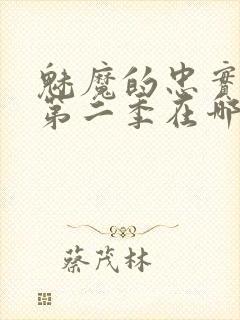 魅魔的忠實
第二季在哪
蔡茂林